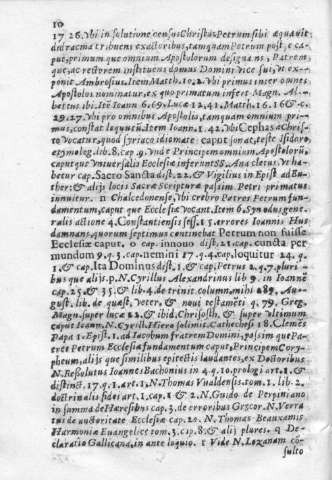 10
17 26. Vbi in solutione census Christus Petrum sibi æquauit
didracma tribuens exactoribus, tamquam Petrum post, e ca-
pite, primum que omnium Apostolorum designans, Patrem
que, ac rectorem instituens domus Domini vice sui, vt ex-
ponit Ambrosius. Item Matth. 10. 2. Vbi primus inter omnes
Apostolos nominatur, ex quo primatum infert Magn. Al-
bertus ibi. Itē Ioann 6. 69. Lucæ 12. 41. Matth. 16. 16 & c.
29. 27. Vbi pro omnibus Apostolis, tamquam omnium pri-
mus, constat loquutū. Item Ioann. 1. 42. Vbi Cephas a Chris-
to vocatur, quod syriace idiomate caput sonat, teste Isidoro,
etymoleg. lib. 8. cap. 9. Vnde Principem omnium Apostolorū,
caput que Vniuersalis Ecclesiæ inferunt SS. Anacletus. Vt ha-
betur cap. Sacro Sancta dist. 22. & Vigilius in Epist ad Eu-
ther: & alij locis Sacræ Scripturæ passim Petri primatus
innuitur. n Chalcedonense, Vbi crebro Patres Petrum fun-
damentum, caput que Ecclesiæ vocant. Item 6. Synodus gene-
ralis actione 4. Constantiensis sess. 15 errores Ioannis Hus
damnans, quorum septimus continebat Petrum non fuisse
Ecclesiæ caput. o cap. innouo dist. 21. cap. cuncta per
mundum 9. q. 3. cap. nemini 17. q. 4. cap. loquitur 24. q.
1. & cap. Ita Dominus dist. 1. & cap. Petrus 2. q. 7. pluri-
bus que alijs. p. N. Cyrillus Alexandrinus lib 9. in Ioannē
cap. 25. & 35. & lib. 4. de trinit. column. mihi 289. Au-
gust. lib. de quæst. veter, & noui testamēti q. 79. Greg.
Magn. super lucæ 22. & ibid. Chrisosth. & super vltimum
caput Ioann. N. Cyrill. Hierosolimit. Cathechesi 18. Clemēs
Papa 1. Epist. 1. ad Iacobum fratrem Domini, passim que Pa-
tres Petrum Ecclesiæ fundamentum caput, Principem Cory-
pheum, alijs que similibus epitectis laudantes, ex Doctoribus
N. Resolutus Ioannes Bachonius in 4. q. 10. prologi art. 1. &
distinct. 17. q. 1. art. 1. N. Thomas Vualdensis. tom. 1. lib. 2.
doctrinalis fidei art. 1. cap. 1 & 2. N. Guido de Perpiniano
in summa de Hæresibus cap. 3. de erroribus Græcor. N. Verra
tus de auctoritate Ecclesiæ cap. 20. N. Thomas Beauxamis
Harmoniæ Euangelicæ tom. 3. cap. 8. & alij plures. q De-
claratio Gallicana, in ante loquio. r Vide N. Lezanam cō-
sulto